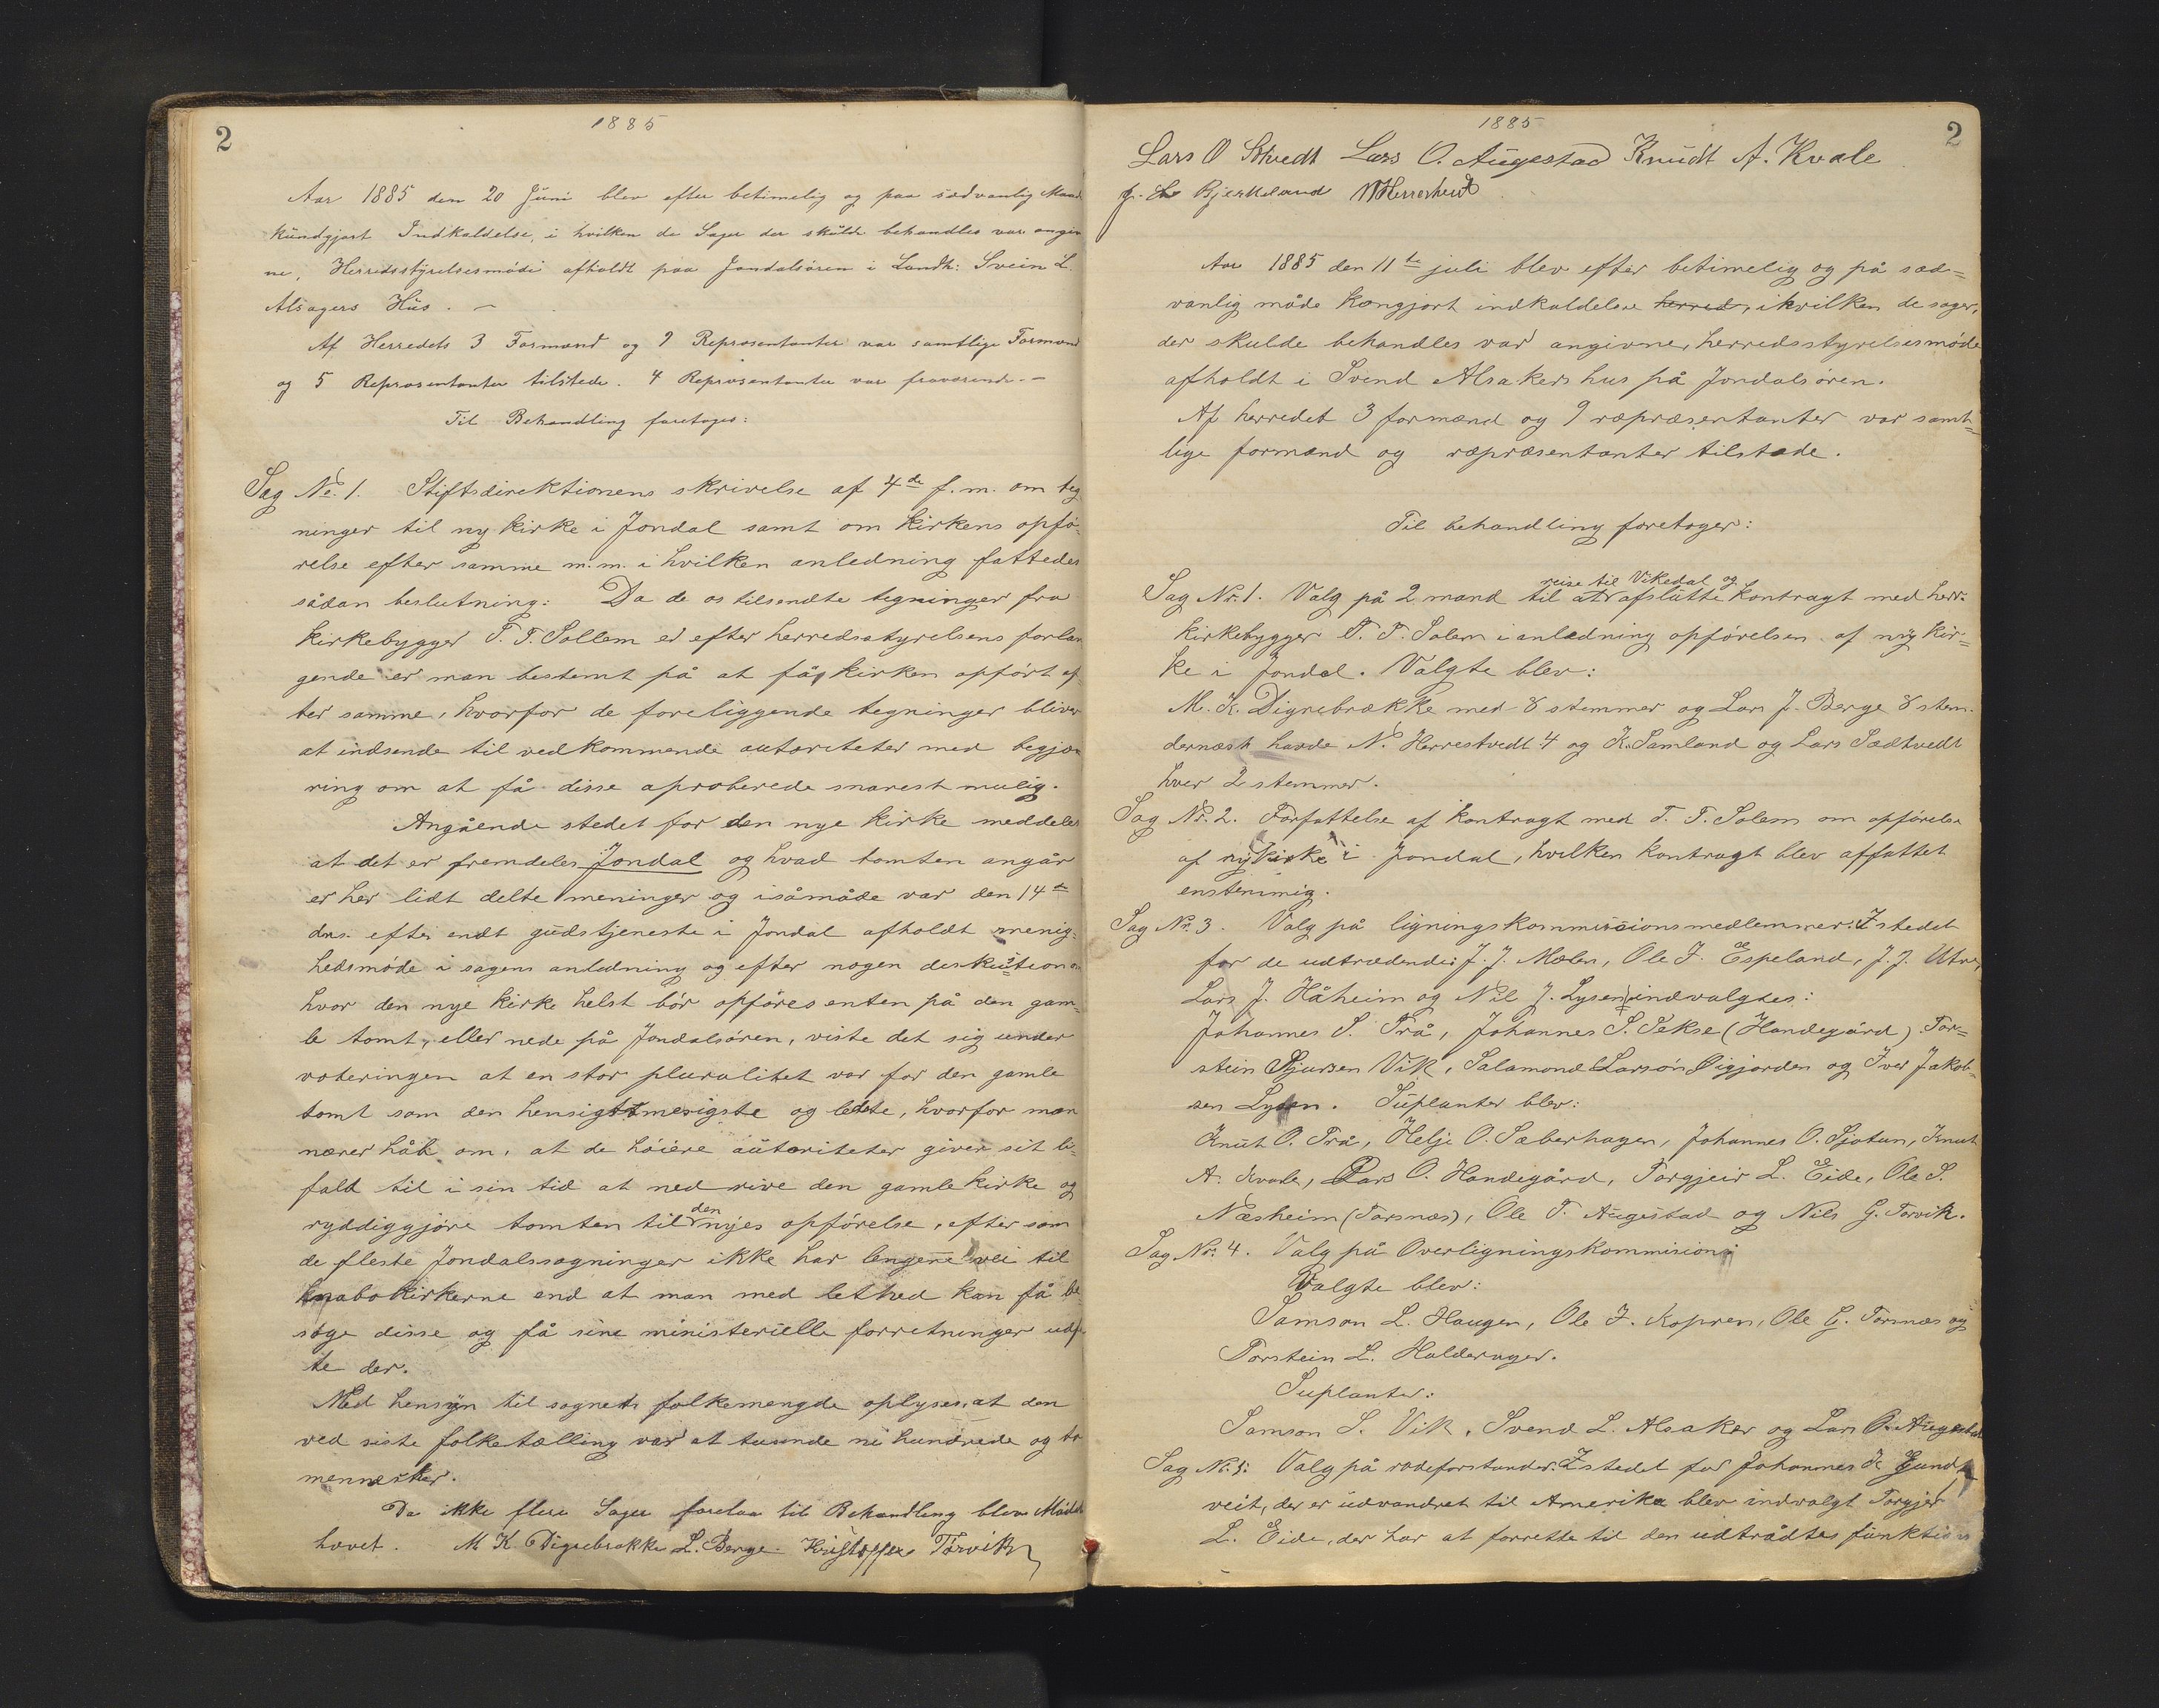 1885
2
Aar 1885 den 20 Juni blev efter betimelig og paa sædvanlig Maade
kundgjort Indkaldelse, i hvilken de Sager der skulde behandles var angiv
ne, Herredsstyrelsesmøde afholdt paa Jondalsøren i Landh: Svein L.
Alsagers Hus. –
Af Herredets 3 Formænd og 9 Repræsentanter var samtlige Formænd
og 5 Repræsentanter tilstede. 4 Repræsentanter var fraværende. –
Til Behandling foretoges:
Sag No. 1. Stiftsdirektionens skrivelse af 4de f.m. om teg
ninger til ny kirke i Jondal samt om kirkens opfø-
relse efter samme m.m. i hvilken anledning fattedes
sådan beslutning: Da de os tilsendte tegninger fra
kirkebygger T. T. Sollem er efter herredsstyrelsens forlan
gende er man bestemt på at få kirken opført ef
ter samme, hvorfor de foreliggende tegninger bliver
at indsende til vedkommende autoriteter med begjæ
ring om at få disse aproberede snarest mulig.
Angående stedet for den nye kirke meddeles
at det er fremdeles Jondal og hvad tomten angår
er her lidt delte meninger og isåmåde var den 14de
dns. efter endt gudstjeneste i Jondal afholdt menig-
hedsmøde i sagens anledning og efter nogen deskution om
hvor den nye kirke helst bør opføres enten på den gam-
le tomt, eller nede på Jondalsøren, viste det sig under
voteringen at en stor pluralitet var for den gamle
tomt som den hensigtsmesigste og ledste, hvorfor man
nærer håb om, at de høiere autoriteter giver sit bi-
fald til i sin tid at nedrive den gamle kirke og
ryddiggjøre tomten til den nyes opførelse, efter som
de fleste Jondalssogninger ikke har lengere vei til
nabokirkerne end at man med lethed kan få be-
søge disse og få sine ministerielle forretninger udfør
te der.
Med hensyn til sognets folkemengde oplyses, at den
ved siste folketælling var at tusinde ni hundrede og to
mennesker.
Da ikke flere Sager forelaa til Behandling blev Mødet
hævet. M K Digrebrække L. Berge Kristoffer Torvik
1885
2
Lars O Sætvedt Lars O. Augestad Knudt A. Kvale
Bjerkeland N Herrestveit
Aar 1885 den 11te juli blev efter betimelig og på sæd=
vanlig måde kongjort indkaldelse herred, i hvilken de sager,
der skulde behandles var angivne, herredsstyrelsesmøde
afholdt i Svend Alsakers hus på Jondalsøren.
Af herredet 3 formænd og 9 repræsentanter var samt=
lige formænd og repræsentanter tilstæde.
Til behandling foretoges:
Sag Nr. 1. Valg på 2 mænd til at reise til Vikedal og afslutte kontragt med herr.
kirkebygger T. T. Solem i anledning opførelsen af ny kir=
ke i Jondal. Valgte blev:
M. K. Digrebrække med 8 stemmer og Lars J. Berge 8 stem.
dernæst havde N. Herrestvedt 4 og K. Samland og Lars Sædtvedt
hver 2 stemmer.
Sag Nr. 2. Forfattelse af kontragt med T. T. Solem om opførelse
af ny kirke i Jondal, hvilken kontragt blev affattet
enstemmig.
Sag Nr. 3. Valg på ligningskommissionsmedlemmer. I stedet
for de udtrædende: J. J. Mælen, Ole J. Espeland, J. J. Utne,
Lars J. Håheim og Nil J. Lysen indvalgtes:
Johannes S. Trå, Johannes S. Sekse (Handegård) Tor=
stein Sjursen Vik, Salamond Larsøn Digjorden og Iver Jakob-
sen Lysen. Suplanter blev:
Knut O. Trå, Helje O. Sæberhagen, Johannes O. Sjotun, Knut
A. Kvale, Lars O. Handegård, Torgjeir L. Eide, Ole S.
Næsheim (Torsnæs), Ole T. Augestad og Nils G. Torvik.
Sag Nr. 4. Valg på Overligningskommision.
Valgte blev:
Samson L. Haugen, Ole J. Kopren, Ole G. Torsnæs og
Torstein L. Halderager.
Suplanter:
Samson S. Vik, Svend L. Alsaker og Lars O. Augestad
Sag Nr. 5. Valg på rodeforstander. I stedet for Johannes
veit, der er udvandret til Amerika blev indvalgt Torgjer
L. Eide, der har at forrette til den udtrådtes funktions